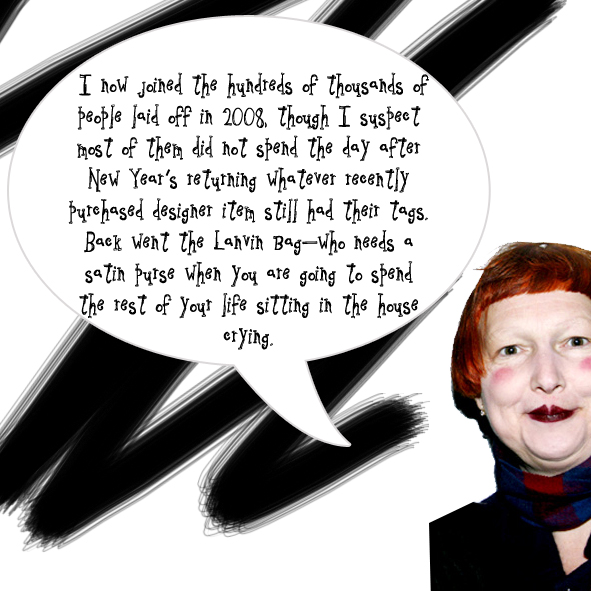 I now joined the hundreds of thousands of
people laid off in 2008, though I suspect
most of them did not spend the day after
New Year's returning whatever recently
purchased designer item still had their tags.
Back went the Lanvin Bag—who needs a
satin purse when you are going to spend
the rest of your life sitting in the house
crying.